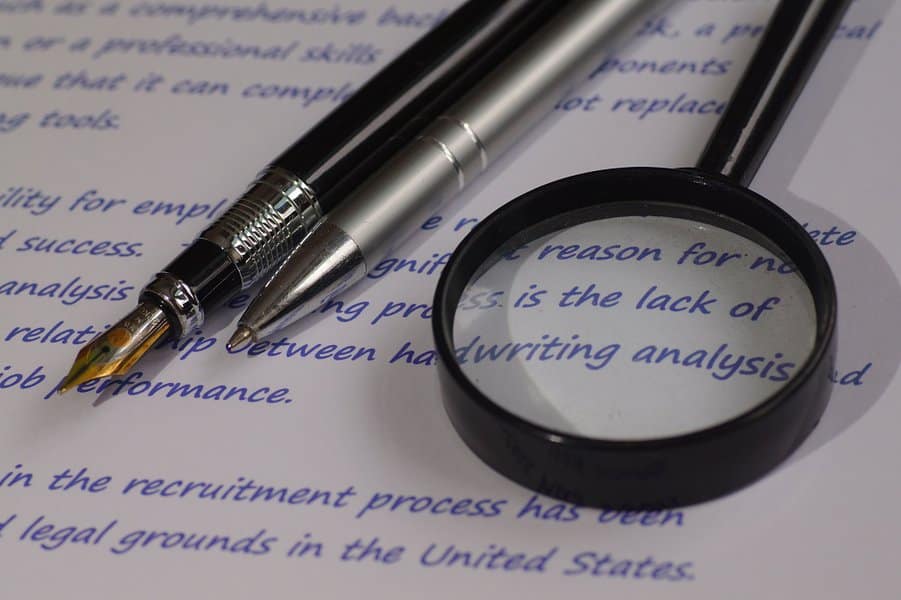 as a comprehensive back k, a p cal
n or a professional skills ponents
ue that it can comple ot replace
ng tools.
ility for empl e r ete
d success. gnif reason for no
analysis ng process is the lack of
relati ip between handwriting analysis d
job performance.
in the recruitment process has been
d legal grounds in the United States.